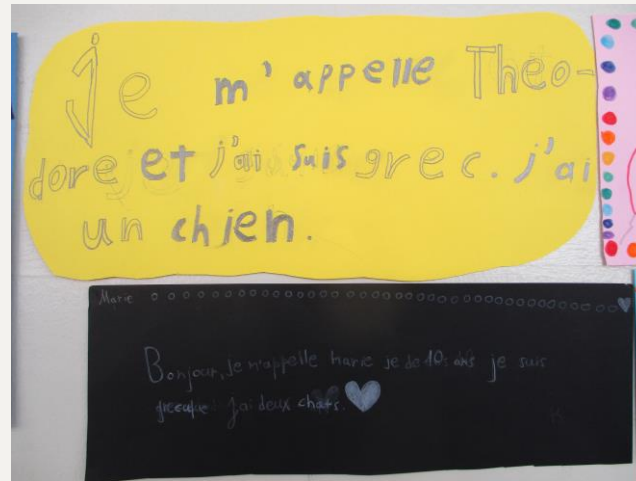 je m'appelle Théo-
dore et j'ai suis grec. j'ai
un chien.
Marie
Bonjour, je m'appelle marie je de 10 ans je suis
grecque j'ai deux chats.